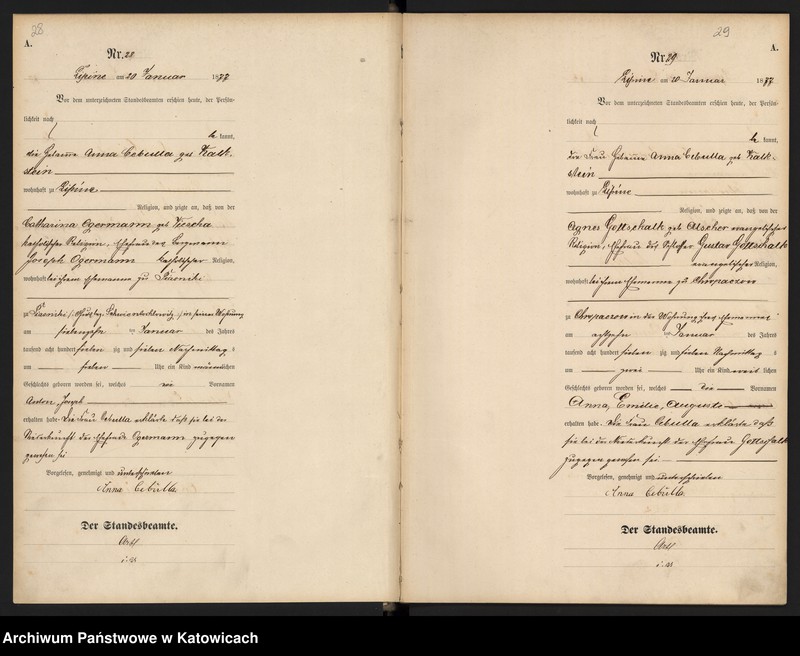 28
A.
Nr. 28
Lipine am 20 Januar 1877
Vor dem unterzeichneten Standesbeamten erschien heute, der Persön-
lichkeit nach
be kannt,
die Hebamme Anna Cebulla geb Kalk-
stein
wohnhaft zu Lipine
Religion, und zeigte an, daß von der
Catharina Ogermann geb
katholischer Religion, Ehefrau des Bergmann
Joseph Ogermann katholischer Religion,
wohnhaft bei ihrem Ehemanne zu Piasniki
zu Piasniki in seiner Wohnung
am siebenzehn ten Januar des Jahres
tausend acht hundert sieben zig und sieben Nachmittag s
um sieben Uhr ein Kind männlichen
Geschlechts geboren worden sei, welches die Vornamen
Anton, Joseph
erhalten habe. Die Frau Cebulla erklärte daß sie bei der
Niederkunft der Ehefrau Ogermann zugegen
gewesen sei
Vorgelesen, genehmigt und unterschrieben
Anna Cebulla
Der Standesbeamte.
29
A.
Nr. 29
Lipine am 20 Januar 1877
Vor dem unterzeichneten Standesbeamten erschien heute, der Persön-
lichkeit nach
be kannt,
die Frau Hebamme Anna Cebulla geb Kalk-
stein
wohnhaft zu Lipine
Religion, und zeigte an, daß von der
Agnes Gottschalk geb Ulscher evangelischer
Religion, Ehefrau des Schlosser Gustav Gottschalk
evangelischer Religion,
wohnhaft bei ihrem Ehemanne zu Chropaczow
zu Chropaczow in der Wohnung ihres Ehemannes
am achtzehn ten Januar des Jahres
tausend acht hundert sieben zig und sieben Nachmittag s
um zwei Uhr ein Kind weib lichen
Geschlechts geboren worden sei, welches die Vornamen
Anna, Emilie, Auguste
erhalten habe. Die Frau Cebulla erklärte daß
sie bei der Niederkunft der Ehefrau Gottschalk
zugegen gewesen sei
Vorgelesen, genehmigt und unterschrieben
Anna Cebulla
Der Standesbeamte.
Archiwum Państwowe w Katowicach